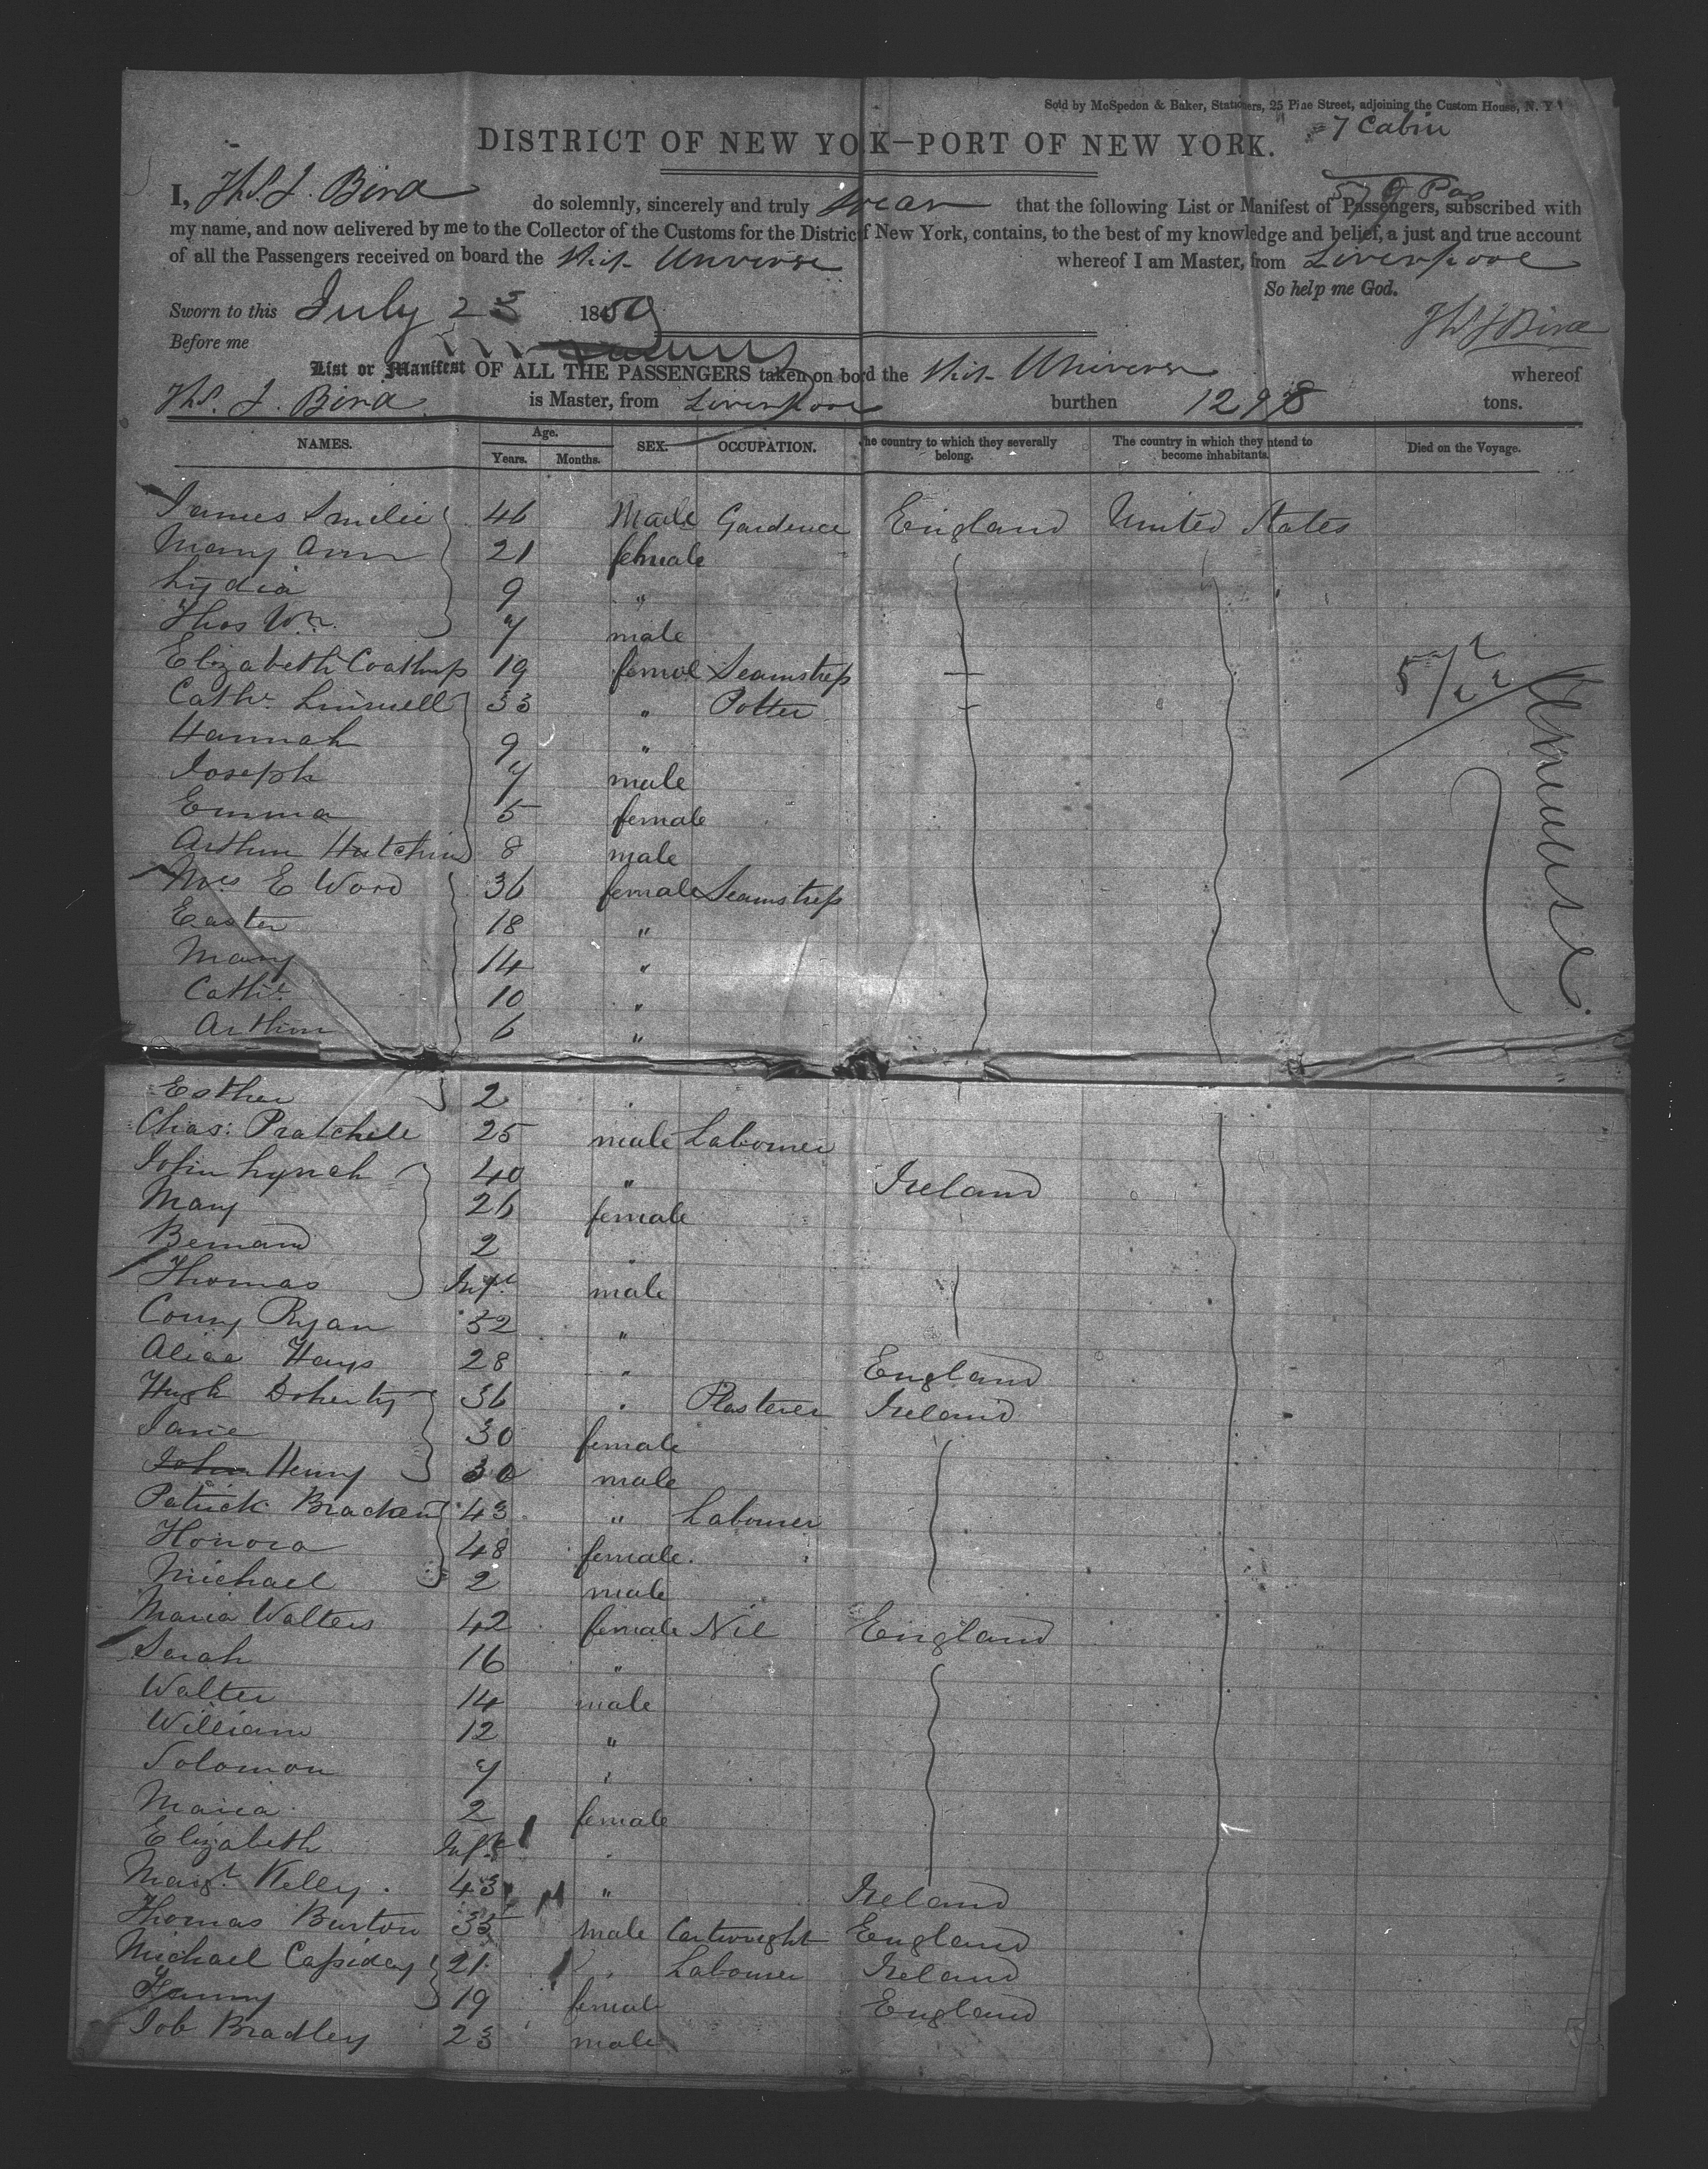 Sold by McSpedon & Baker, Stationers, 25 Pine Street, adjoining the Custom House, N. Y.
7 Cabin
DISTRICT OF NEW YO K—PORT OF NEW YORK.
579 Pas
I, Ths. J. Bird do solemnly, sincerely and truly swear that the following List or Manifest of Passengers, subscribed with
my name, and now delivered by me to the Collector of the Customs for the District f New York, contains, to the best of my knowledge and belief, a just and true account
of all the Passengers received on board the Ship Universe whereof I am Master, from Liverpool
So help me God.
Sworn to this July 23 1850
Ths J Bird
Before me
List or Manifest OF ALL THE PASSENGERS taken on bord the Ship Universe whereof
Ths. J. Bird is Master, from Liverpool burthen 1298 tons.
NAMES. Age. Years. Months. SEX. OCCUPATION. he country to which they severally belong. The country in which they ntend to become inhabitants. Died on the Voyage.
James Smilie 46 Male Gardener England United States
Mary Ann 21 female
Lydia 9 "
Thos Wm. 7 male
Elizabeth 19 femal Seamstress
Cathe. Linnell 33 " Potter
Hannah 9 "
Joseph 7 male
Emma 5 female
Arthur Hutchins 8 male
Mrs E Word 36 female Seamstress
Easter 18 "
Mary 14 "
Cathe. 10 "
Arthur 6 "
Esther 2
Chas: Pratchell 25 male Labourer
John Lynch 40 " Ireland
Mary 26 female
Bernard 2 "
Thomas Inft. male
Conny Ryan 32 "
Alice Hays 28 " England
Hugh Doherty 36 " Plasterer Ireland
Jane 30 female
Henry 30 male
Patrick Bracken 43 " Labourer
Honora 48 female
Michael 2 male
Maria Walters 42 female Nil England
Sarah 16 "
Walter 14 male
William 12 "
Solomon 7 "
Maria 2 female
Elizabeth Inft. "
Margt. Kelly 43 " Ireland
Thomas Burton 35 male Cartwright England
Michael Cassidey 21 " Labourer Ireland
Fanny 19 female England
Job Bradley 23 male